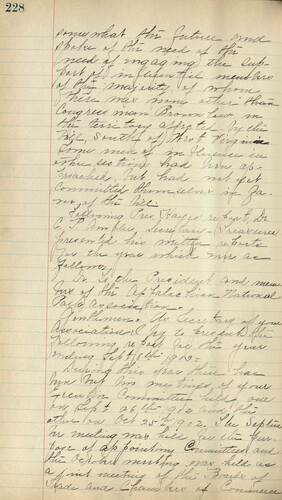 228
somewhat the future and
spoke of the need of the
need of engaging the sup-
port of influential members
of the majority of whom
there was none other than
Congressman Brownlow in
the territory affected by the
Bill, South of West Virginia
Some men of influence in
other sections had been ap-
proached, but had not yet
committed themselves in fa-
vor of the Bill
Following Pres. report, Dr
C. P. Ambler, Secretary-Treasurer
presented his written reports
for the year which was as
follows:
To the President and mem-
bers of the Appalachian National
Park Association.
Gentlemen: As Secretary of your
Association I beg to present the
following report for the year
ending Sept 1902-
During this year there has
been but two meetings of your
Executive Committee held, one
on Sept. 26th 1902 and the
other on Oct 25th 1902. The Septem-
ber meeting was held for the pur-
pose of appointing Committees and
the October meeting was held as
a joint meeting of the Boards of
Trade and Chambers of Commerce